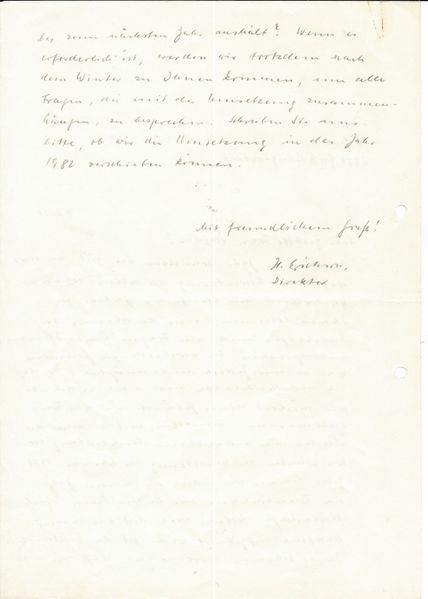 bis zum nächsten Jahr aushält? Wenn es
erforderlich ist, werden wir trotzdem nach
dem Winter zu Ihnen kommen, um alle
Fragen, die mit der Umsetzung zusammen-
hängen, zu besprechen. Schreiben Sie uns
bitte, ob wir die Umsetzung in das Jahr
1982 verschieben können.
Mit freundlichem Gruß!
Direktor